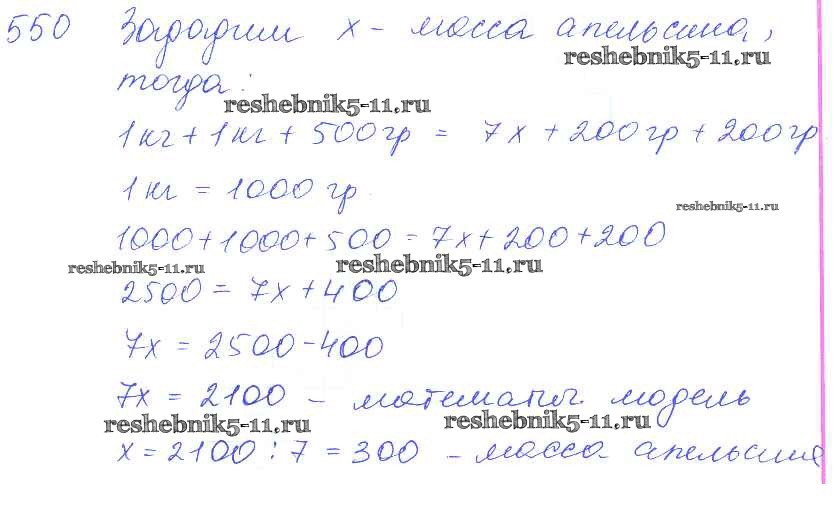 550 Зададим x - масса апельсина,
reshebnik5-11.ru
тогда:
reshebnik5-11.ru
1кг + 1кг + 500гр = 7x + 200гр + 200гр
1кг = 1000гр
reshebnik5-11.ru
1000 + 1000 + 500 = 7x + 200 + 200
reshebnik5-11.ru reshebnik5-11.ru
2500 = 7x + 400
7x = 2500 - 400
7x = 2100 - математич. модель
reshebnik5-11.ru reshebnik5-11.ru
x = 2100 : 7 = 300 - масса апельсина